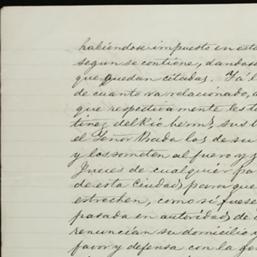 habiéndose impuesto en esta
segun se contiene, dandose
que quedan citadas. Y á l
de cuanto va relacionado, a
que respectivamente les to
tinez del Rio herms, sus b
el Señor Prada los de su
y los someten al fuero y j
Jueces de cualquier pa
de esta Ciudad, para que
estrechen, como si fuese
pasada en autoridad de c
renuncian su domicilio y
favor y defensa con la